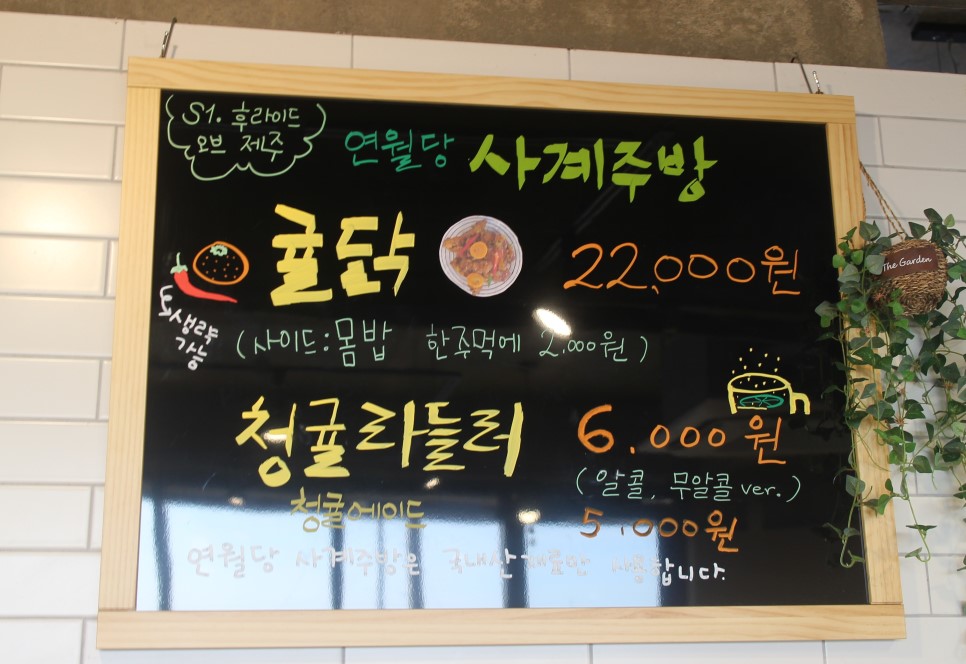 S1. 후라이드
오브 제주
연월당 사계주방
귤닭 22,000원
생략
가능
(사이드:몸밥 한주먹에 2,000원)
청귤라들러 6,000원
(알콜, 무알콜 ver.)
청귤에이드 5,000원
연월당 사계주방은 국내산 재료만 사용합니다.
The Garden